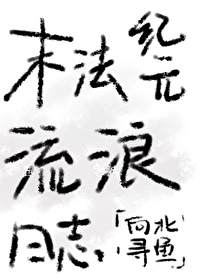 末法纪元
流浪
日志
「向北寻鱼」